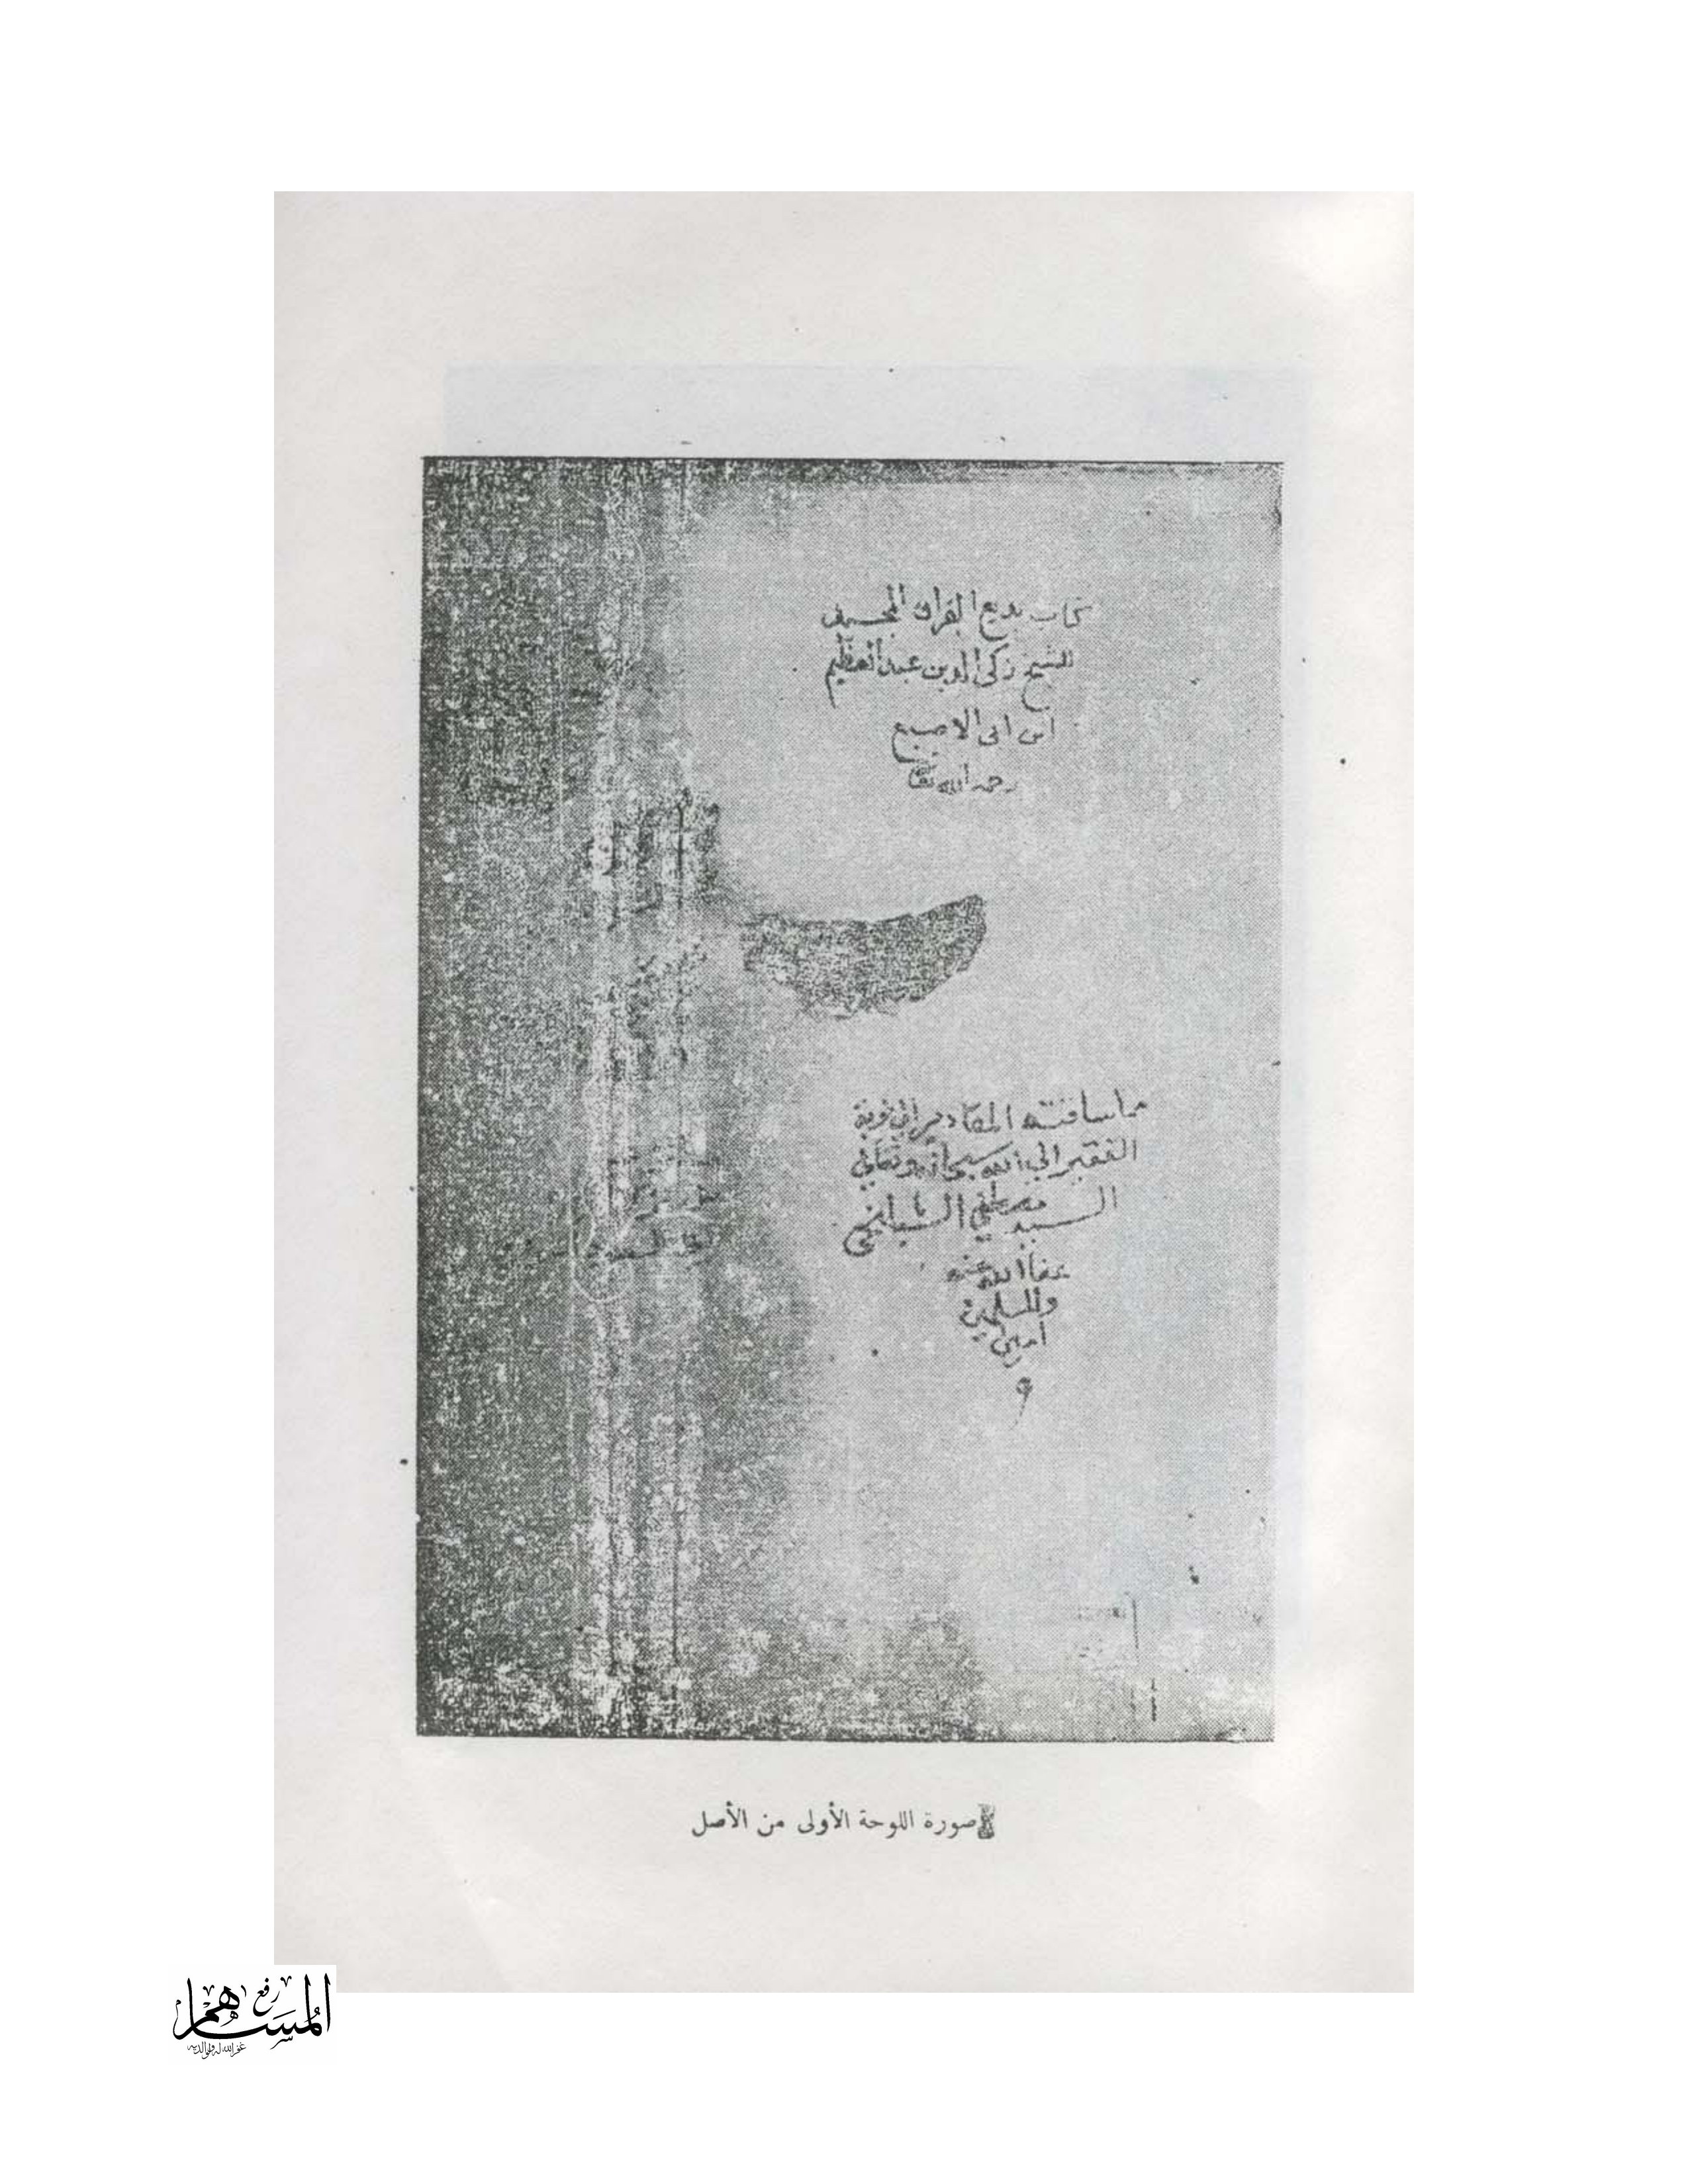 كتاب بديع القران المجيد
للشيخ زكى الدين عبد العظيم
ابن ابى الاصبع
رحمه الله تعالى
مما ساقته المقادير الى نوبة
الفقير الى الله سبحانه وتعالى
السيد مصطفى
عفا الله عنه
وللمسلمين
امين
صورة اللوحة الأولى من الأصل
رفع
المساهم
غفر الله له ولوالديه